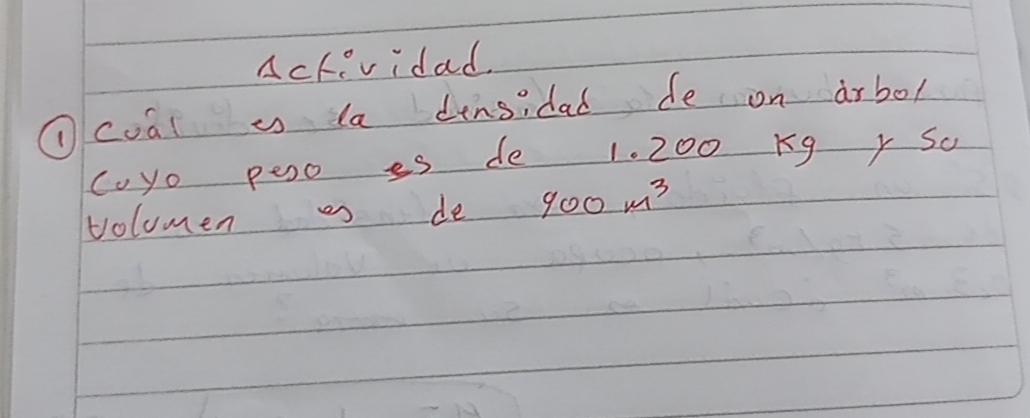 Actividad.
① Cuál es la densidad de un árbol
cuyo peso es de 1.200 Kg y su
volumen es de 900 m³